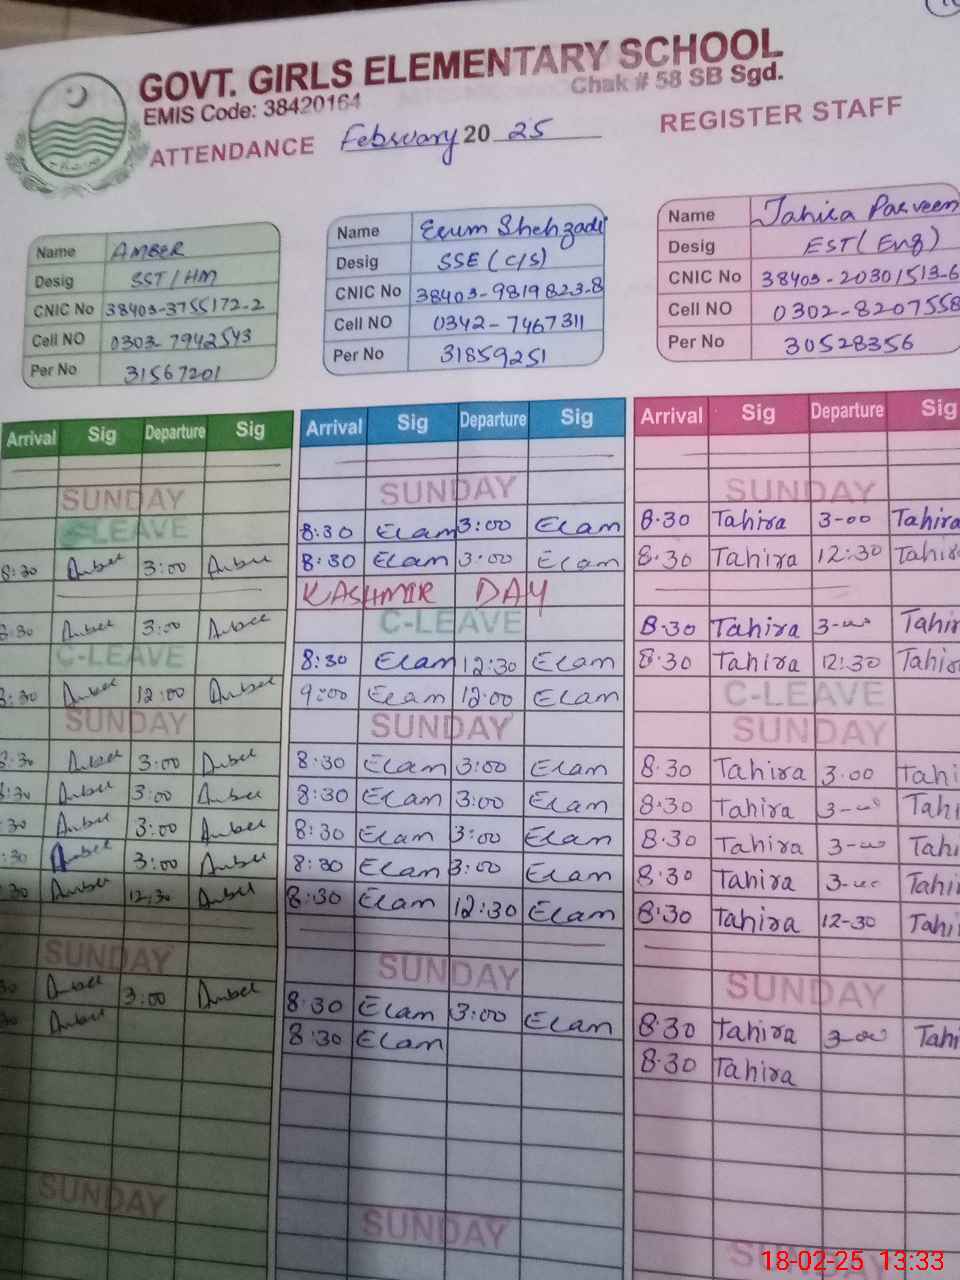 GOVT. GIRLS ELEMENTARY SCHOOL
EMIS Code: 38420164 Chak # 58 SB Sgd.
ATTENDANCE February 2025 REGISTER STAFF
Name AMBER
Desig SST/HM
CNIC No 38403-3755172-2
Cell NO 0303-7942543
Per No 31567201
Name Erum Shehzadi
Desig SSE (C/S)
CNIC No 38403-9819823-8
Cell NO 0342-7467311
Per No 31859251
Name Tahira Parveen
Desig EST (Eng)
CNIC No 38403-20301513-6
Cell NO 0302-8207558
Per No 30528356
Arrival Sig Departure Sig
SUNDAY
C-LEAVE
8:30 Amber 3:00 Amber
8:30 Amber 3:00 Amber
C-LEAVE
8:30 Amber 12:00 Amber
SUNDAY
8:30 Amber 3:00 Amber
8:30 Amber 3:00 Amber
:30 Amber 3:00 Amber
:30 Amber 3:00 Amber
:30 Amber 12:30 Amber
SUNDAY
30 Amber 3:00 Amber
30 Amber
SUNDAY
Arrival Sig Departure Sig
SUNDAY
8:30 Eram 3:00 Eram
8:30 Eram 3:00 Eram
KASHMIR DAY
C-LEAVE
8:30 Eram 12:30 Eram
9:00 Eram 12:00 Eram
SUNDAY
8:30 Eram 3:00 Eram
8:30 Eram 3:00 Eram
8:30 Eram 3:00 Eram
8:30 Eram 3:00 Eram
8:30 Eram 12:30 Eram
SUNDAY
8:30 Eram 3:00 Eram
8:30 Eram
SUNDAY
Arrival Sig Departure Sig
SUNDAY
8.30 Tahira 3-00 Tahira
8.30 Tahira 12:30 Tahir
8.30 Tahira 3-00 Tahir
8.30 Tahira 12:30 Tahir
C-LEAVE
SUNDAY
8.30 Tahira 3.00 Tahi
8.30 Tahira 3-00 Tahi
8.30 Tahira 3-00 Tahi
8.30 Tahira 3-00 Tahi
8.30 Tahira 12-30 Tahi
SUNDAY
8.30 Tahira 3-00 Tahi
8.30 Tahira
SUNDAY
18-02-25 13:33